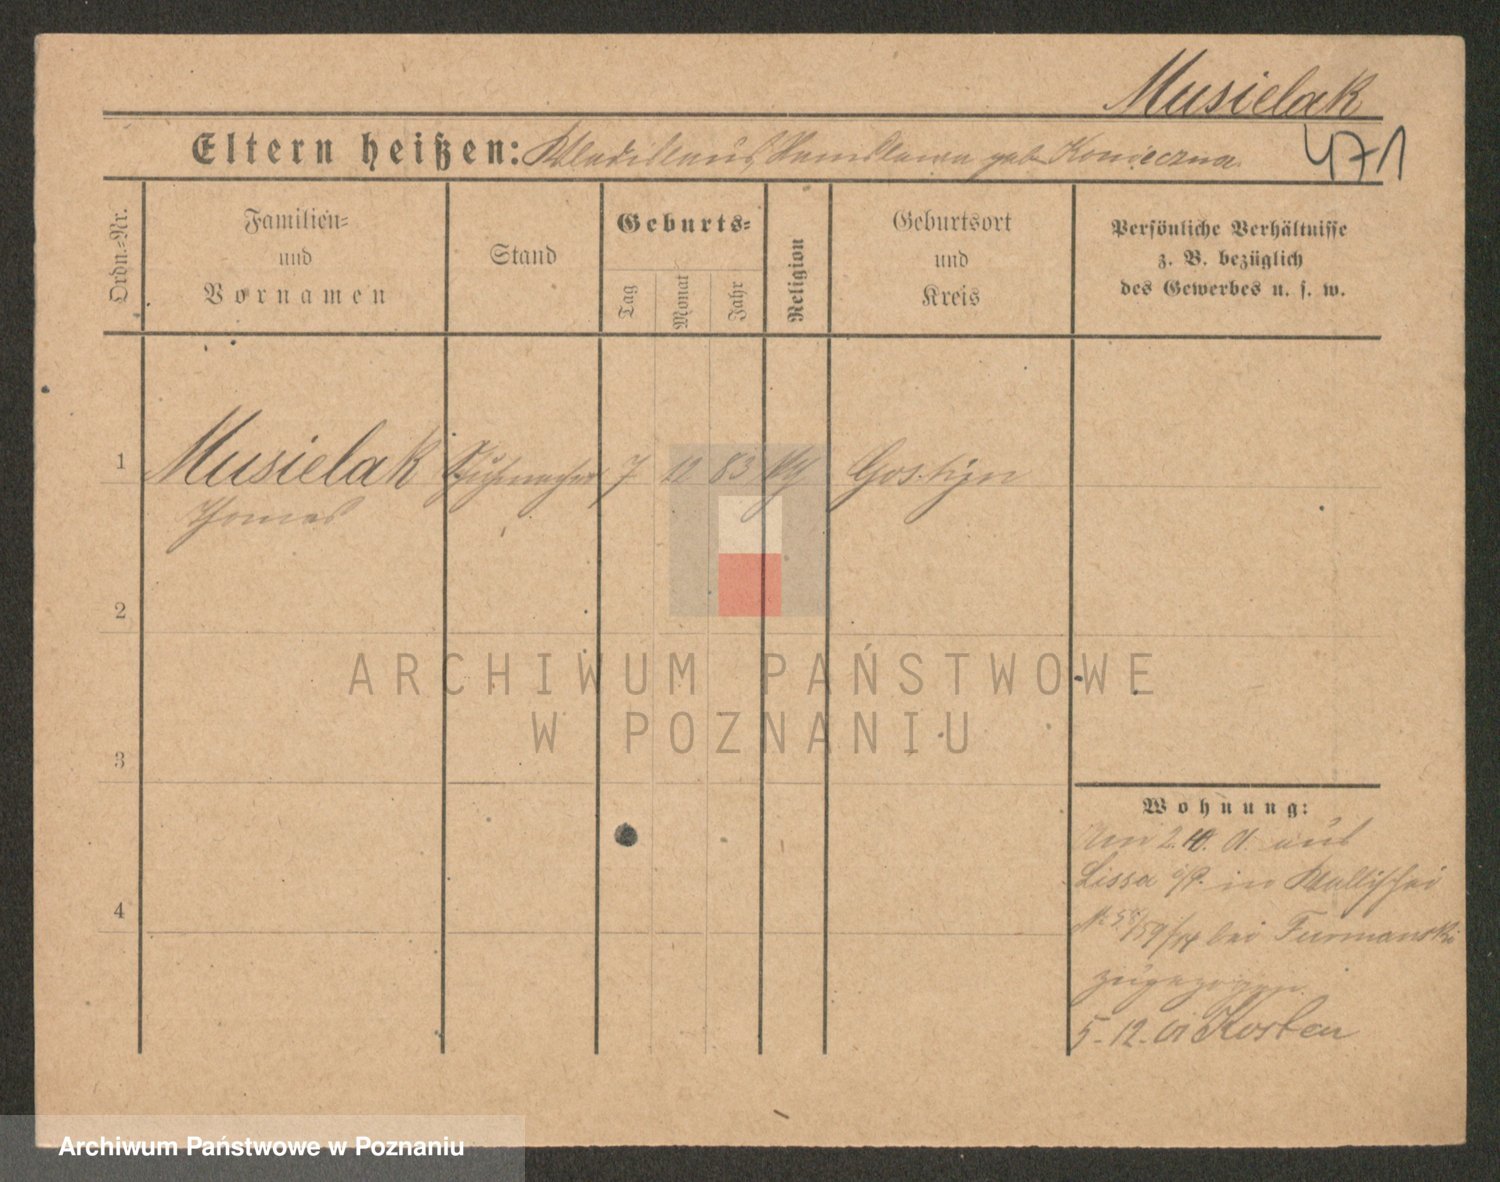 Musielak
Eltern heißen: Wladislaus, geb. Konieczna
471
Ordn.-Nr.
Familien-
und
Vornamen
Stand
Geburts-
Tag
Monat
Jahr
Religion
Geburtsort
und
Kreis
Persönliche Verhältnisse
z. B. bezüglich
des Gewerbes u. s. w.
1 Musielak Schuhmacher 7 12 83 Gostyn
Thomas
2
ARCHIWUM PAŃSTWOWE
W POZNANIU
3
Wohnung:
Am 2. aus
Lissa i/P. in Wallischei
bei Furmanski
zugezogen.
4
5.12. Kosten
Archiwum Państwowe w Poznaniu